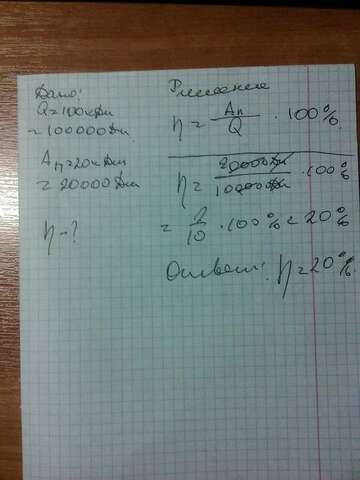 Дано:
Q = 100 кДж
= 100000 Дж
Aп = 20 кДж
= 20000 Дж
η - ?
Решение
η = Aп / Q · 100%
η = 20000 Дж / 100000 Дж · 100%
= 2/10 · 100% = 20%
Ответ: η = 20%